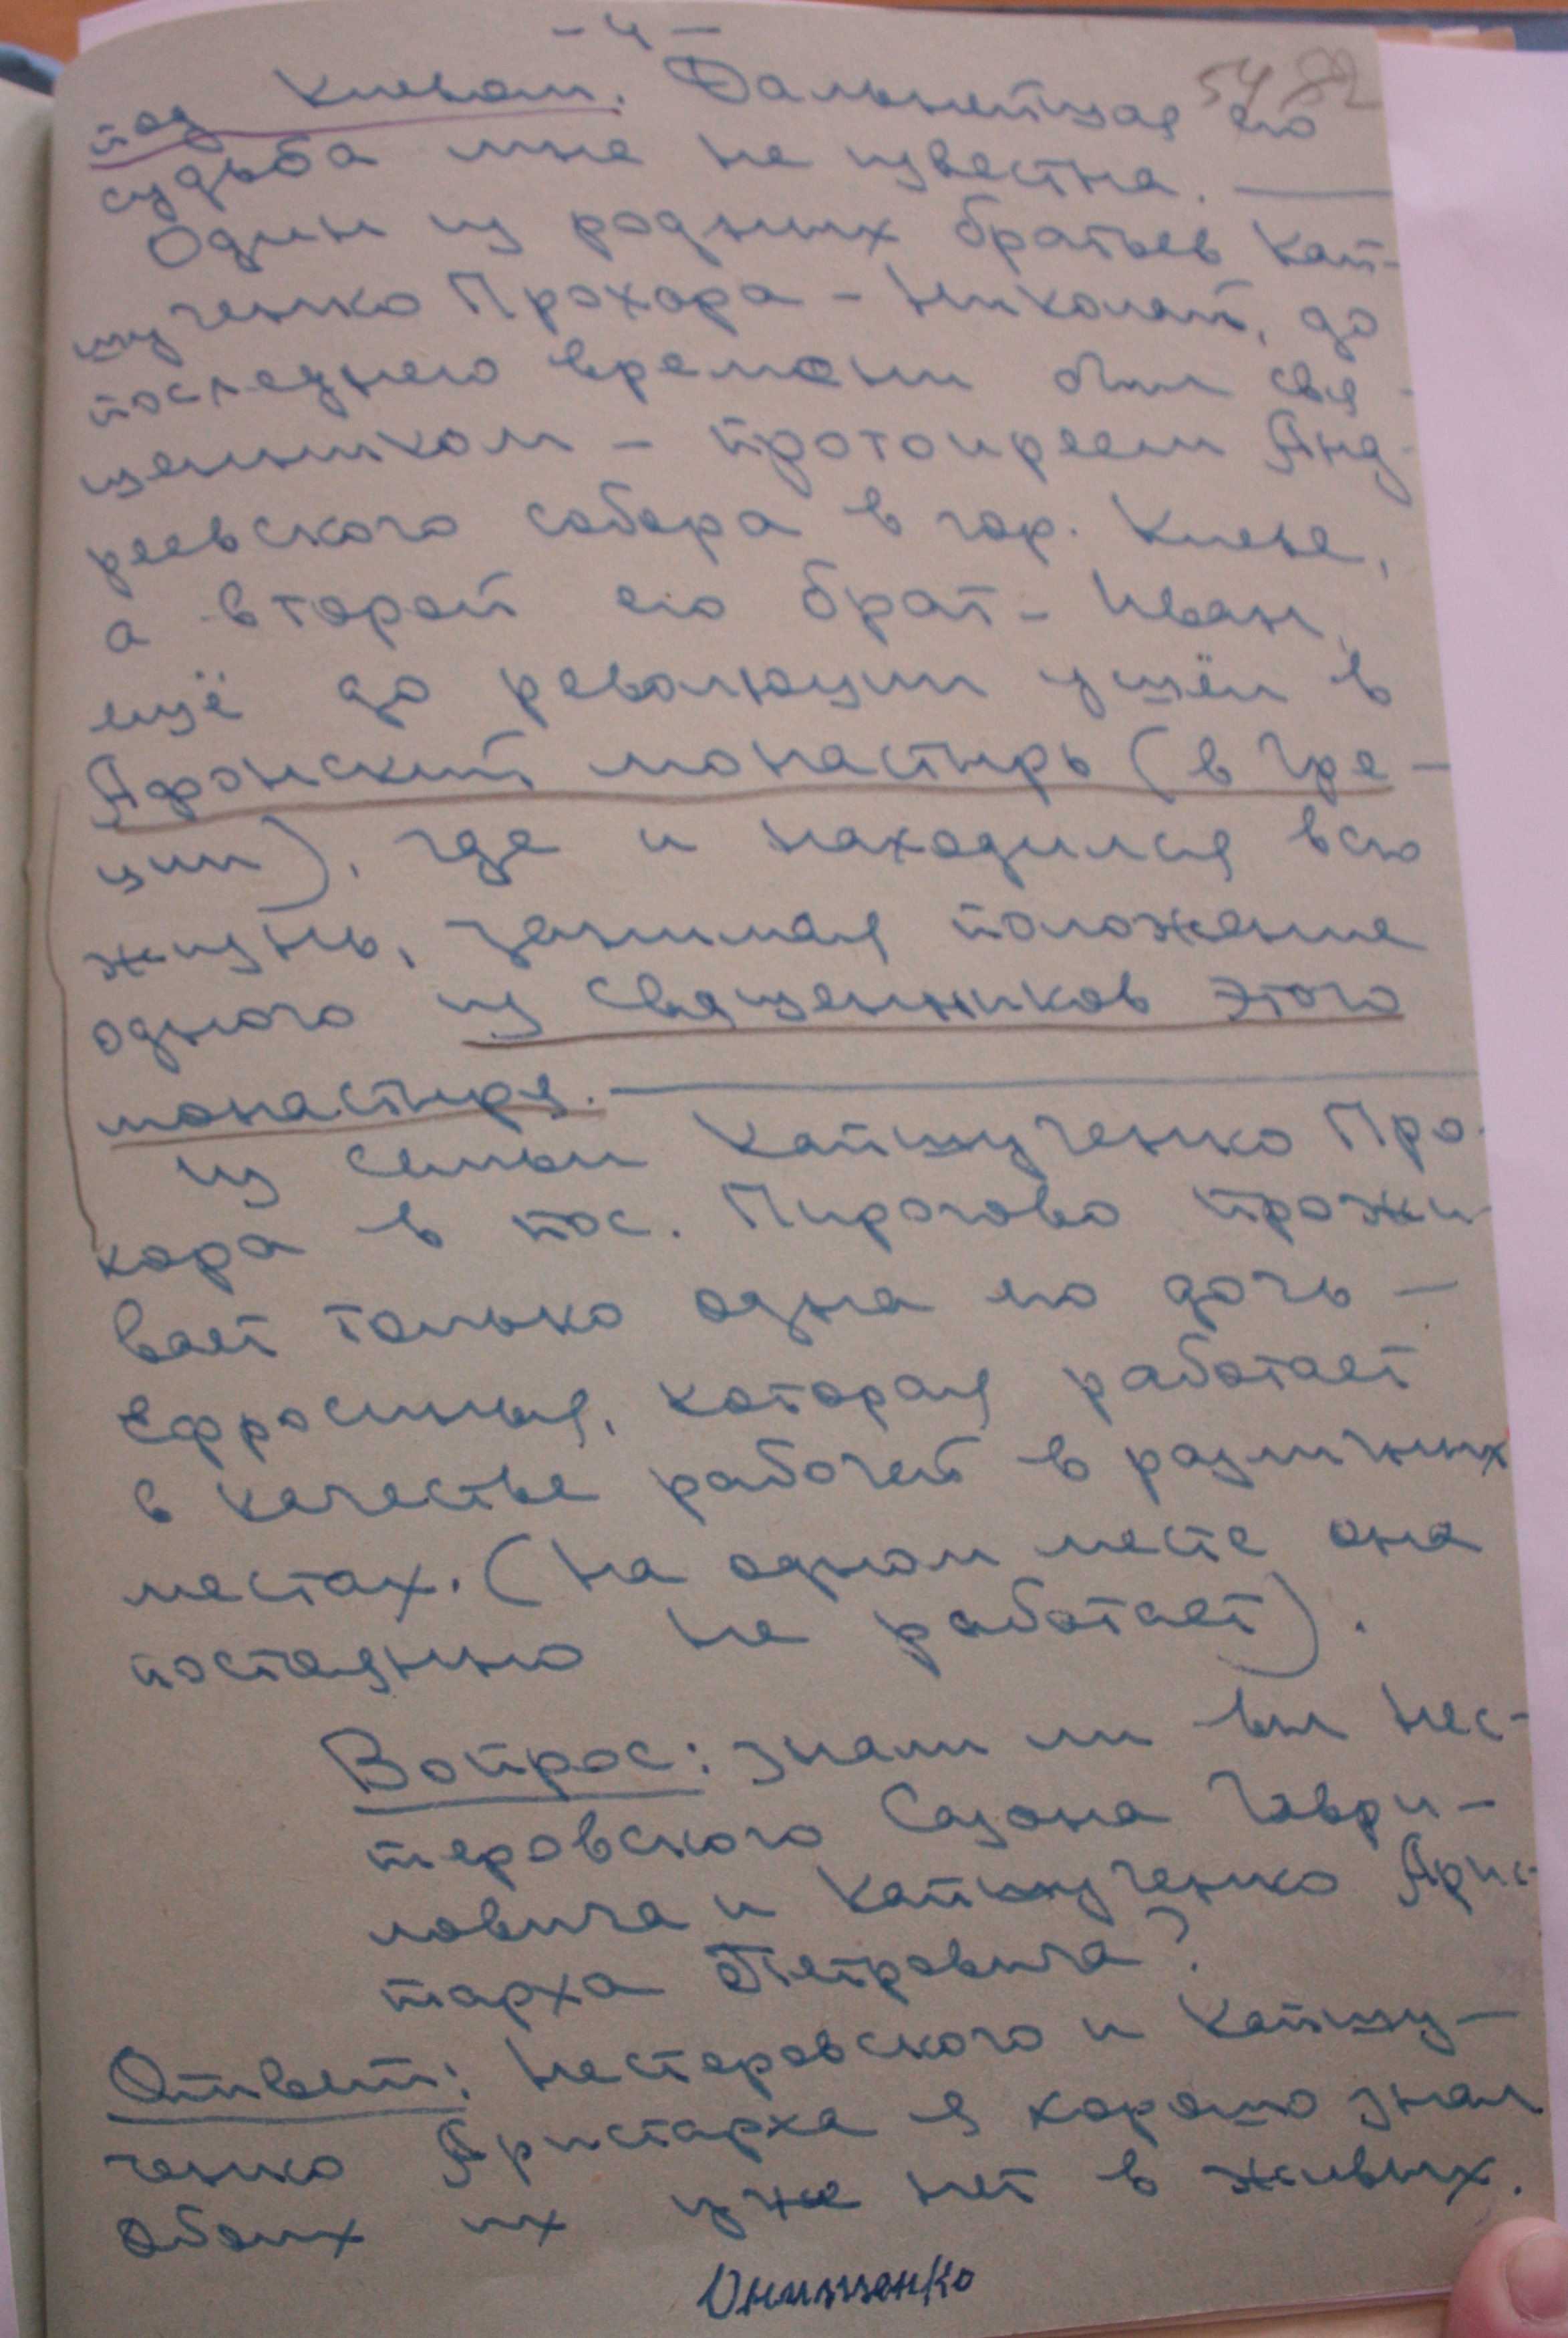 - 4 -
54 82
под Киевом. Дальнейшая его
судьба мне не известна. —
Один из родных братьев Кап-
шученко Прохора - Николай, до
последнего времени был свя-
щенником - протоиреем Анд-
реевского собора в гор. Киеве,
а второй его брат - Иван,
ещё до революции ушёл в
Афонский монастырь (в Гре-
ции), где и находился всю
жизнь, занимая положение
одного из священников этого
монастыря. —
Из семьи Капшученко Про-
хора в пос. Пирогово прожи-
вает только одна его дочь -
Ефросиния, которая работает
в качестве рабочей в различных
местах. (На одном месте она
постоянно не работает).
Вопрос: Знали ли вы Нес-
теровского Сазона Гаври-
ловича и Капшученко Арис-
тарха Петровича?
Ответ: Нестеровского и Капшу-
ченко Аристарха я хорошо знал
Обоих их уже нет в живых.
Онищенко